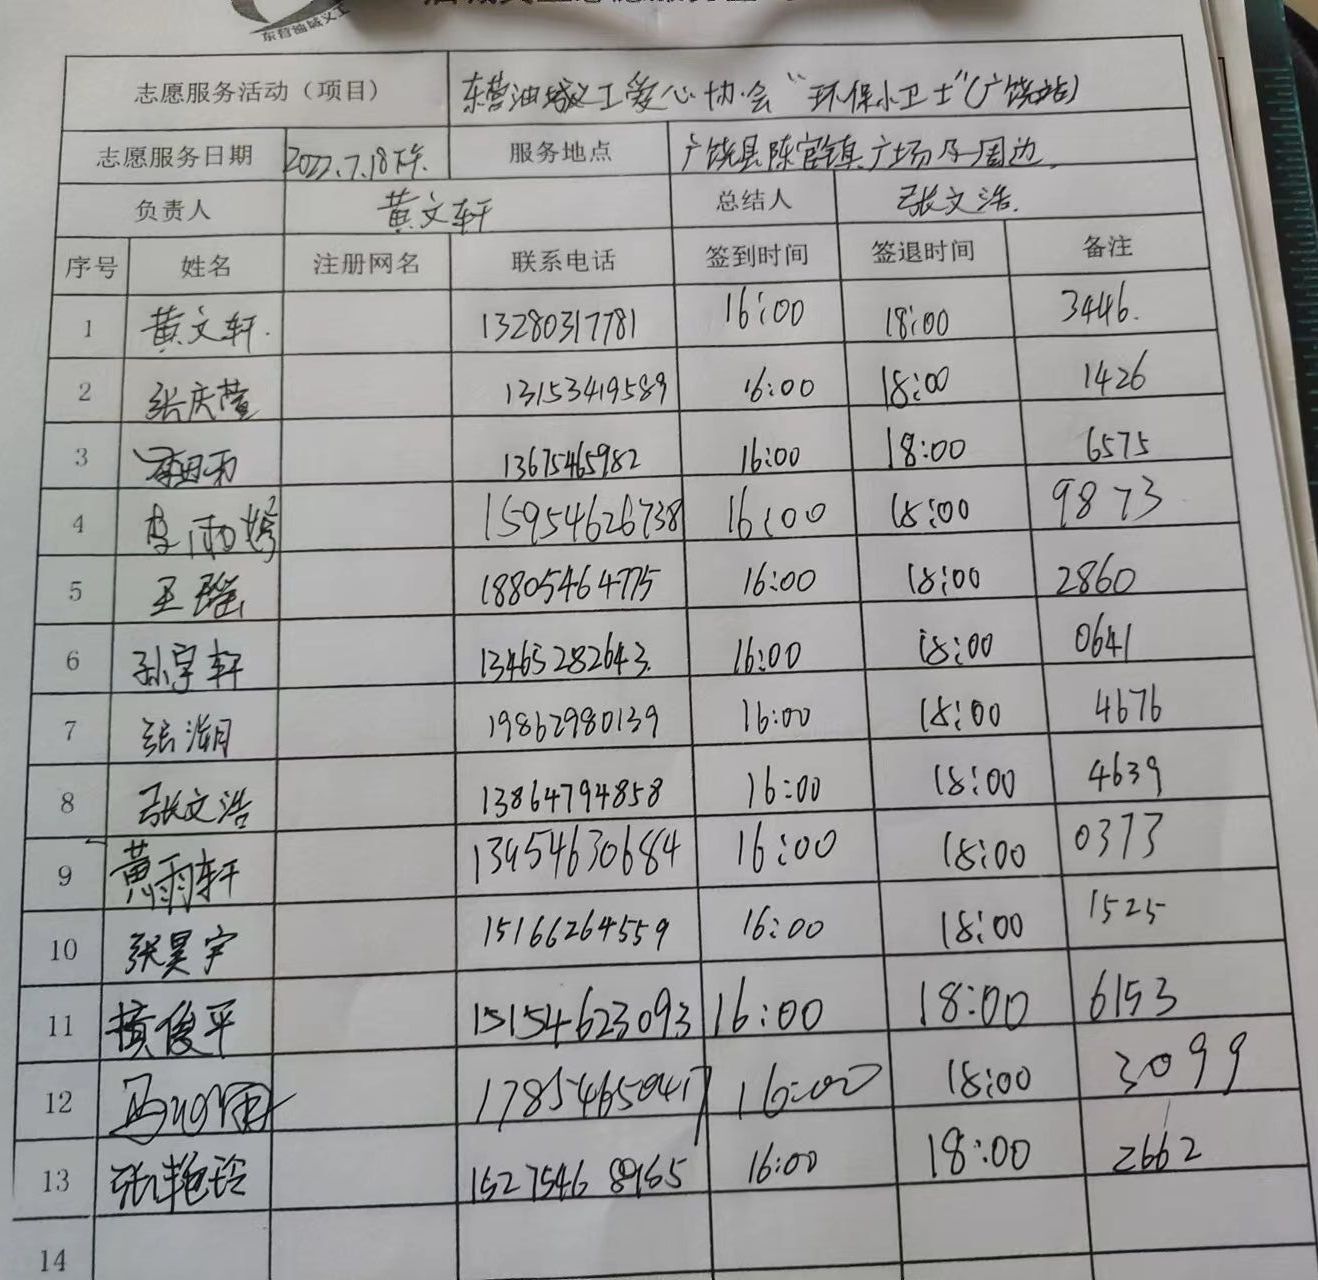 东营油城义工
志愿服务活动（项目） 东营油城义工爱心协会“环保小卫士”(广饶站)
志愿服务日期 2022.7.18下午. 服务地点 广饶县陈官镇广场及周边
负责人 黄文轩 总结人 张文浩.
序号 姓名 注册网名 联系电话 签到时间 签退时间 备注
1 黄文轩. 13280317781 16:00 18:00 3446.
2 张庆萱 13153419589 16:00 18:00 1426
3 13675465982 16:00 18:00 6575
4 李雨嫣 15954626738 16:00 18:00 9873
5 王瑶 18805464775 16:00 18:00 2860
6 孙宇轩 13465282643. 16:00 18:00 0641
7 张湖月 19862980139 16:00 18:00 4676
8 张文浩 13864794858 16:00 18:00 4639
9 黄雨轩 13954630684 16:00 18:00 0373
10 张昊宇 15166264559 16:00 18:00 1525
11 俊平 15154623093 16:00 18:00 6153
12 17854650417 16:00 18:00 3099
13 张艳玲 16:00 18:00 2662
14